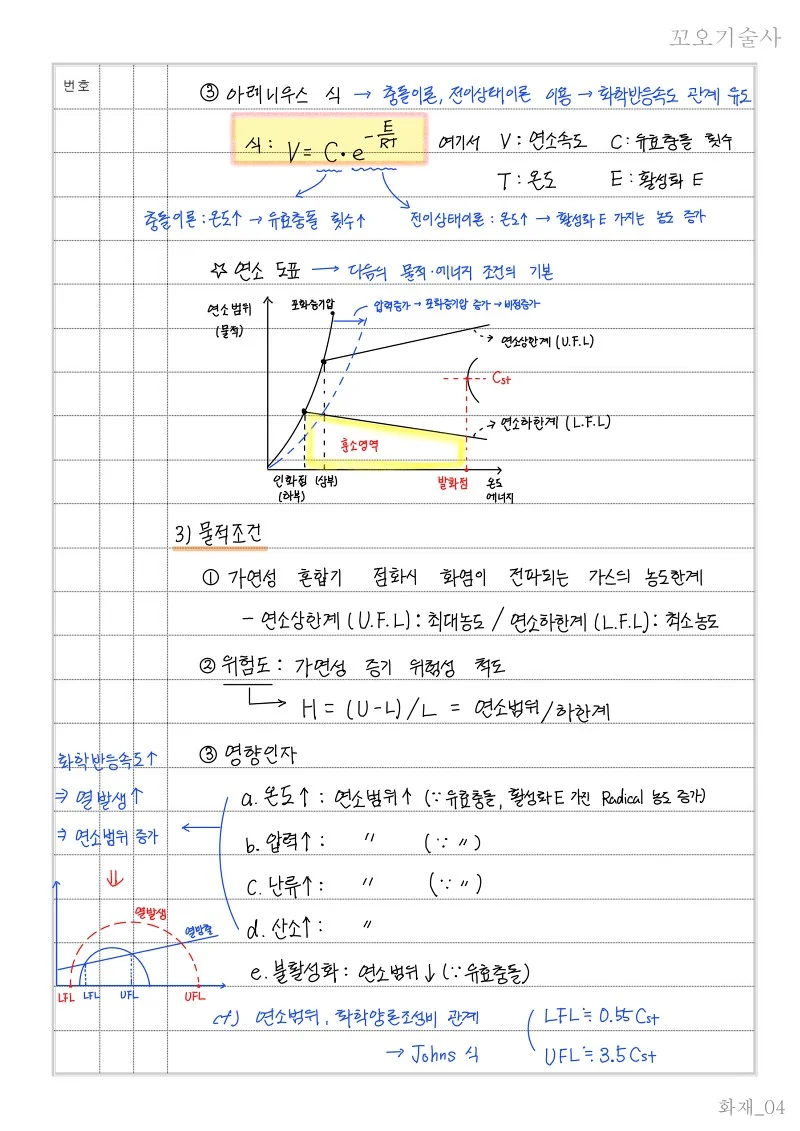 꼬오기술사
번호
③ 아레니우스 식 → 충돌이론, 전이상태이론 이용 → 화학반응속도 관계 유도
식 : V = C·e^(-E/RT) 여기서 V : 연소속도 C : 유효충돌 횟수
T : 온도 E : 활성화 E
충돌이론 : 온도↑ → 유효충돌 횟수↑ 전이상태이론 : 온도↑ → 활성화E 가지는 농도 증가
☆ 연소 도표 → 다음의 물적·에너지 조건의 기본
연소범위 (물적)
포화증기압
압력증가 → 포화증기압 증가 → 비점증가
연소상한계 (U.F.L)
Cst
연소하한계 (L.F.L)
훈소영역
인화점 (하부) (상부) 발화점 온도 에너지
3) 물적조건
① 가연성 혼합기 점화시 화염이 전파되는 가스의 농도한계
- 연소상한계 (U.F.L) : 최대농도 / 연소하한계 (L.F.L) : 최소농도
② 위험도 : 가연성 증기 위험성 척도
→ H = (U-L)/L = 연소범위/하한계
③ 영향인자
a. 온도↑ : 연소범위↑ (∵ 유효충돌, 활성화E 가진 Radical 농도 증가)
b. 압력↑ : 〃 (∵ 〃)
c. 난류↑ : 〃 (∵ 〃)
d. 산소↑ : 〃
e. 불활성화 : 연소범위↓ (∵ 유효충돌)
화학반응속도↑
⇒ 열발생↑
⇒ 연소범위 증가
⇓
열발생
열방출
LFL LFL UFL UFL
(+) 연소범위, 화학양론조성비 관계 LFL ≒ 0.55 Cst
→ Johns 식 UFL ≒ 3.5 Cst
화재_04